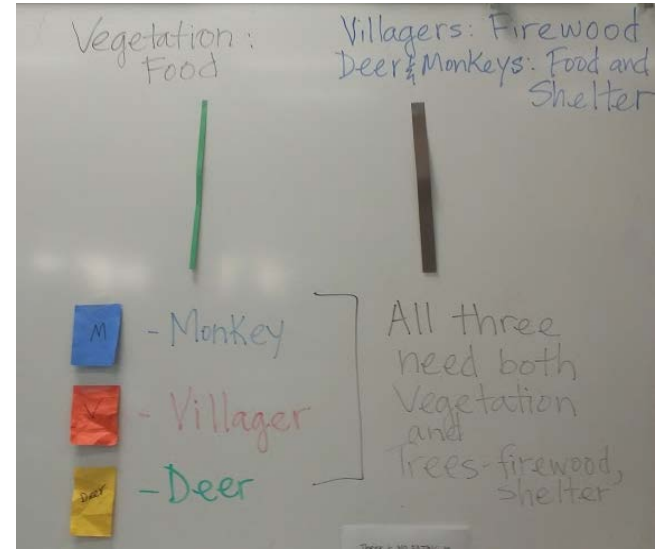 Vegetation:
Food
Villagers: Firewood
Deer & Monkeys: Food and
Shelter
M - Monkey
V - Villager
Deer - Deer
All three
need both
Vegetation
and
Trees-firewood,
shelter